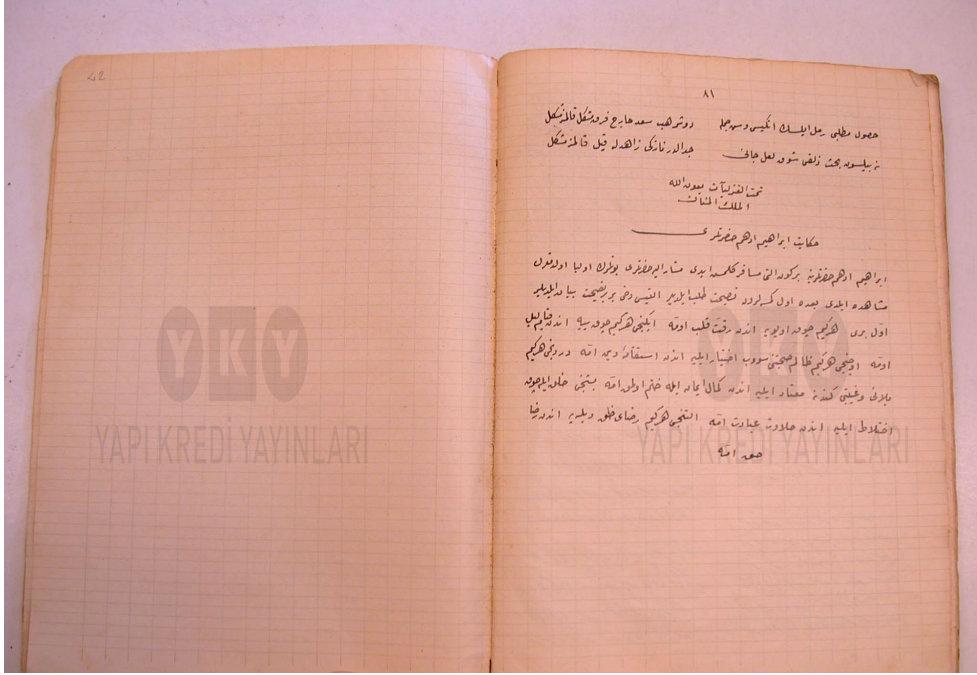 42
٨١
حصول مطلبی رمل ایلسك انكیس وسن جمله دوشر هب سعد خارج فرق شكل قالمز مشكل
نه بیلسون بحث زلفی شوق لعل جانی جدالدر نازكی زاهدله قیل قالمز مشكل
تمت الغزلیات بعون الله
الملك المنان
حكایت ابراهیم ادهم حضرتلری
ابراهیم ادهم حضرتلرینه بركون التی مسافر كلمش ایدی مشار الیه حضرتلری بونلرك اولیا اولدقلرن
مشاهده ایلدی بعده اول كسه لردن نصیحت طلب ایلدیلر التیسی دخی برر نصیحت بیان ایلدیلر
اول بری هركیم چوق اویویه اندن رقت قلب اومه ایكنجی هركیم چوق ییه اندن قیام لیل
اومه اوچنجی هركیم ظالم صحبتنی سووب اختیار ایلیه اندن استقامت دین اومه دردنجی هركیم
یلانی و غیبتی كندینه معتاد ایلیه اندن كمال ایمان ایله ختم اولمق اومه بشنجی خلق ایله چوق
اختلاط ایلیه اندن حلاوت عبادت اومه التنجی هركیم رضای خلق دیلیه اندن رضا
حق اومه
YKY
YAPI KREDİ YAYINLARI
YKY
YAPI KREDİ YAYINLARI